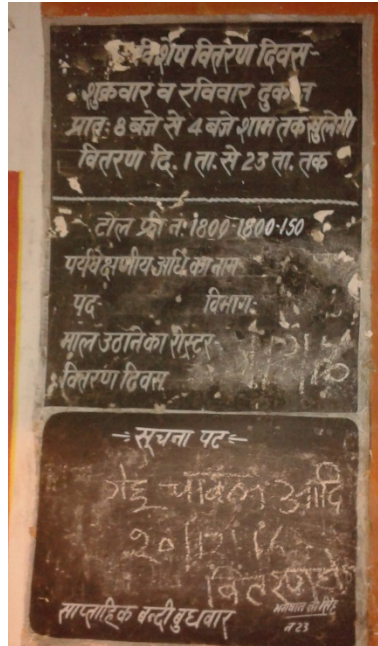 विशेष वितरण दिवस-
शुक्रवार व रविवार दुकान
प्रातः 8 बजे से 4 बजे शाम तक खुलेगी
वितरण दि. 1 ता. से 23 ता. तक
टोल फ्री नं: 1800-1800-150
पर्यवेक्षणीय अधि. का नाम
पद विभाग:
माल उठाने का रोस्टर-
वितरण दिवस
सूचना पट
गेहू चावल आदि
वितरण
साप्ताहिक बन्दी बुधवार